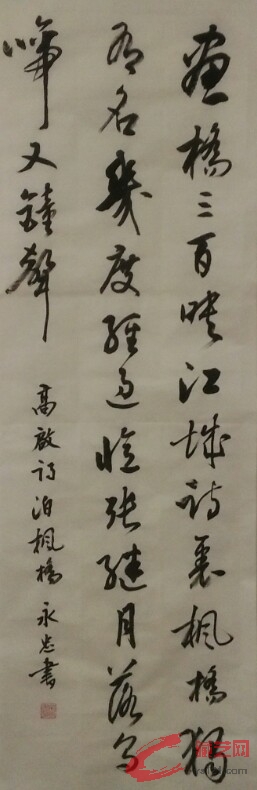 畫橋三百映江城詩裏楓橋獨
有名幾度經過憶張繼月落烏
啼又鐘聲
高啟詩泊楓橋 永忠書